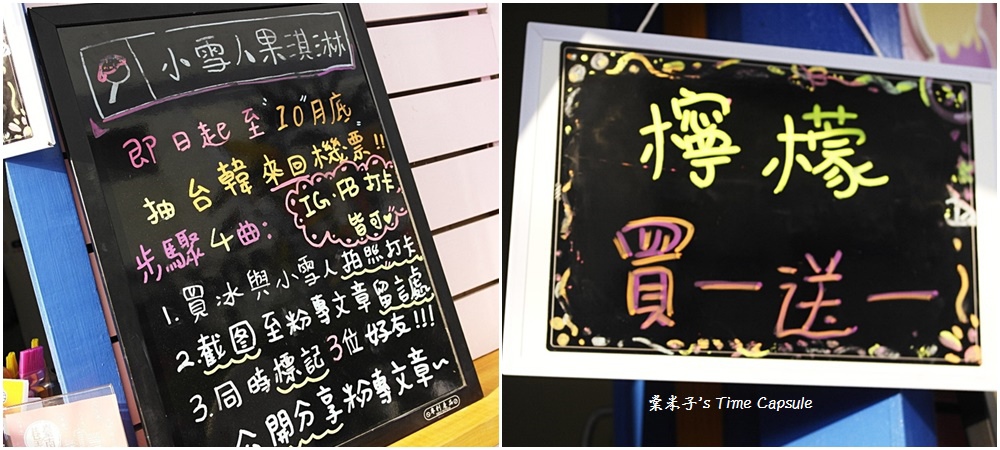 小雪人果淇淋
即日起至"10"月底
抽台韓來回機票!!
IG.FB打卡
皆可
步驟4曲:
1.買冰與小雪人拍照打卡
2.截图至粉專文章留言處
3.同時標記3位好友!!!
開分享粉專文章~
檸檬
買一送一
棠米子's Time Capsule